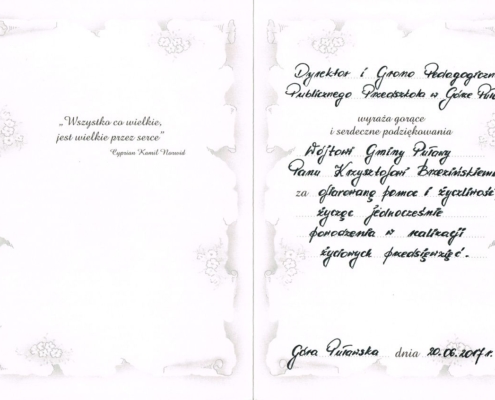 „Wszystko co wielkie,
jest wielkie przez serce”
Cyprian Kamil Norwid
Dyrektor i Grono Pedagogiczn
Publicznego Przedszkola w Górze Puł
wyraża gorące
i serdeczne podziękowania
Wójtowi Gminy Puławy
Panu Krzysztofowi Brzezińskiemu
za ofiarowaną pomoc i życzliwość
życząc jednocześnie
powodzenia w realizacji
życiowych przedsięwzięć.
Góra Puławska dnia 20.06.2017r.